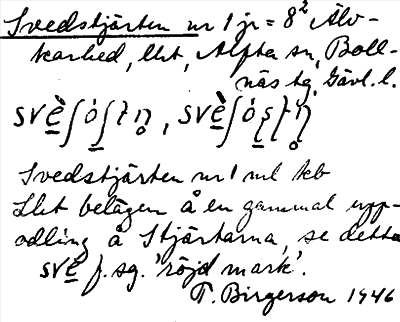 Svedstjärten nr 1 jr = 8² Älv-
karhed, lht, Alfta sn, Boll-
näs tg, Gävl. l.
Svedstjärten nr 1 ml kb
Lht belägen å en gammal upp-
odling å Stjärtarna, se detta
svę f. sg. 'röjd mark'.
T. Birgerson 1946